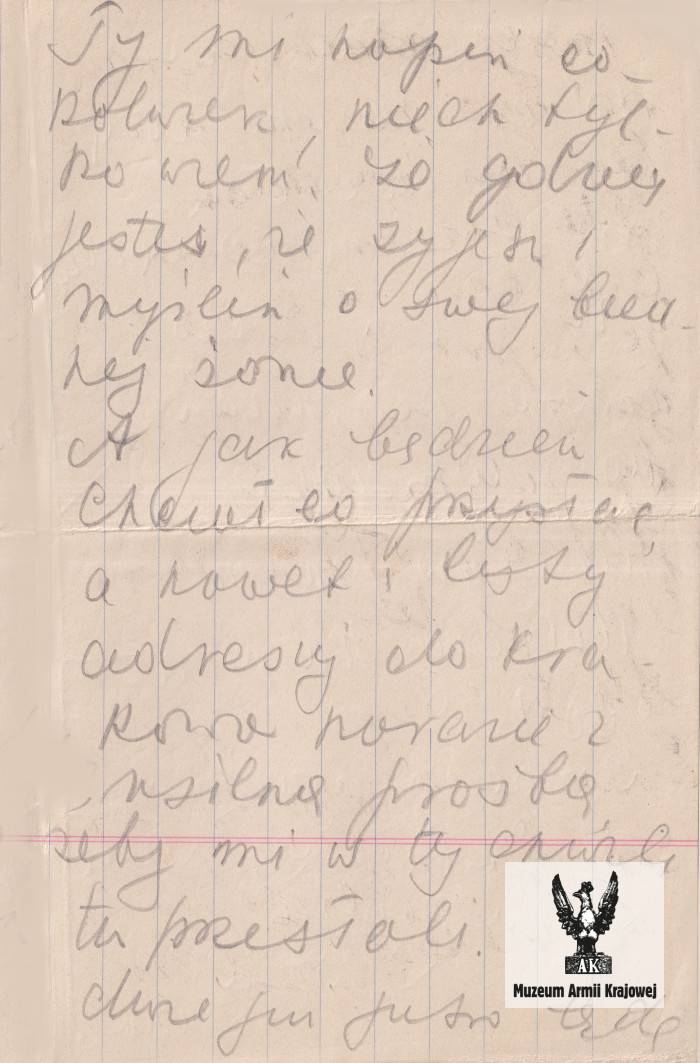 Ty mi napisz co-
kolwiek, niech tyl-
ko wiem, że gdzieś
jesteś, że żyjesz i
myślisz o swej bied-
nej żonie.
A jak będziesz
chciał co przysłać
a nawet i listy
adresuj do Kra-
kowa narazie z
usilną prośbą
żeby mi w tej chwili
tu przesłali.
już będę
AK
Muzeum Armii Krajowej